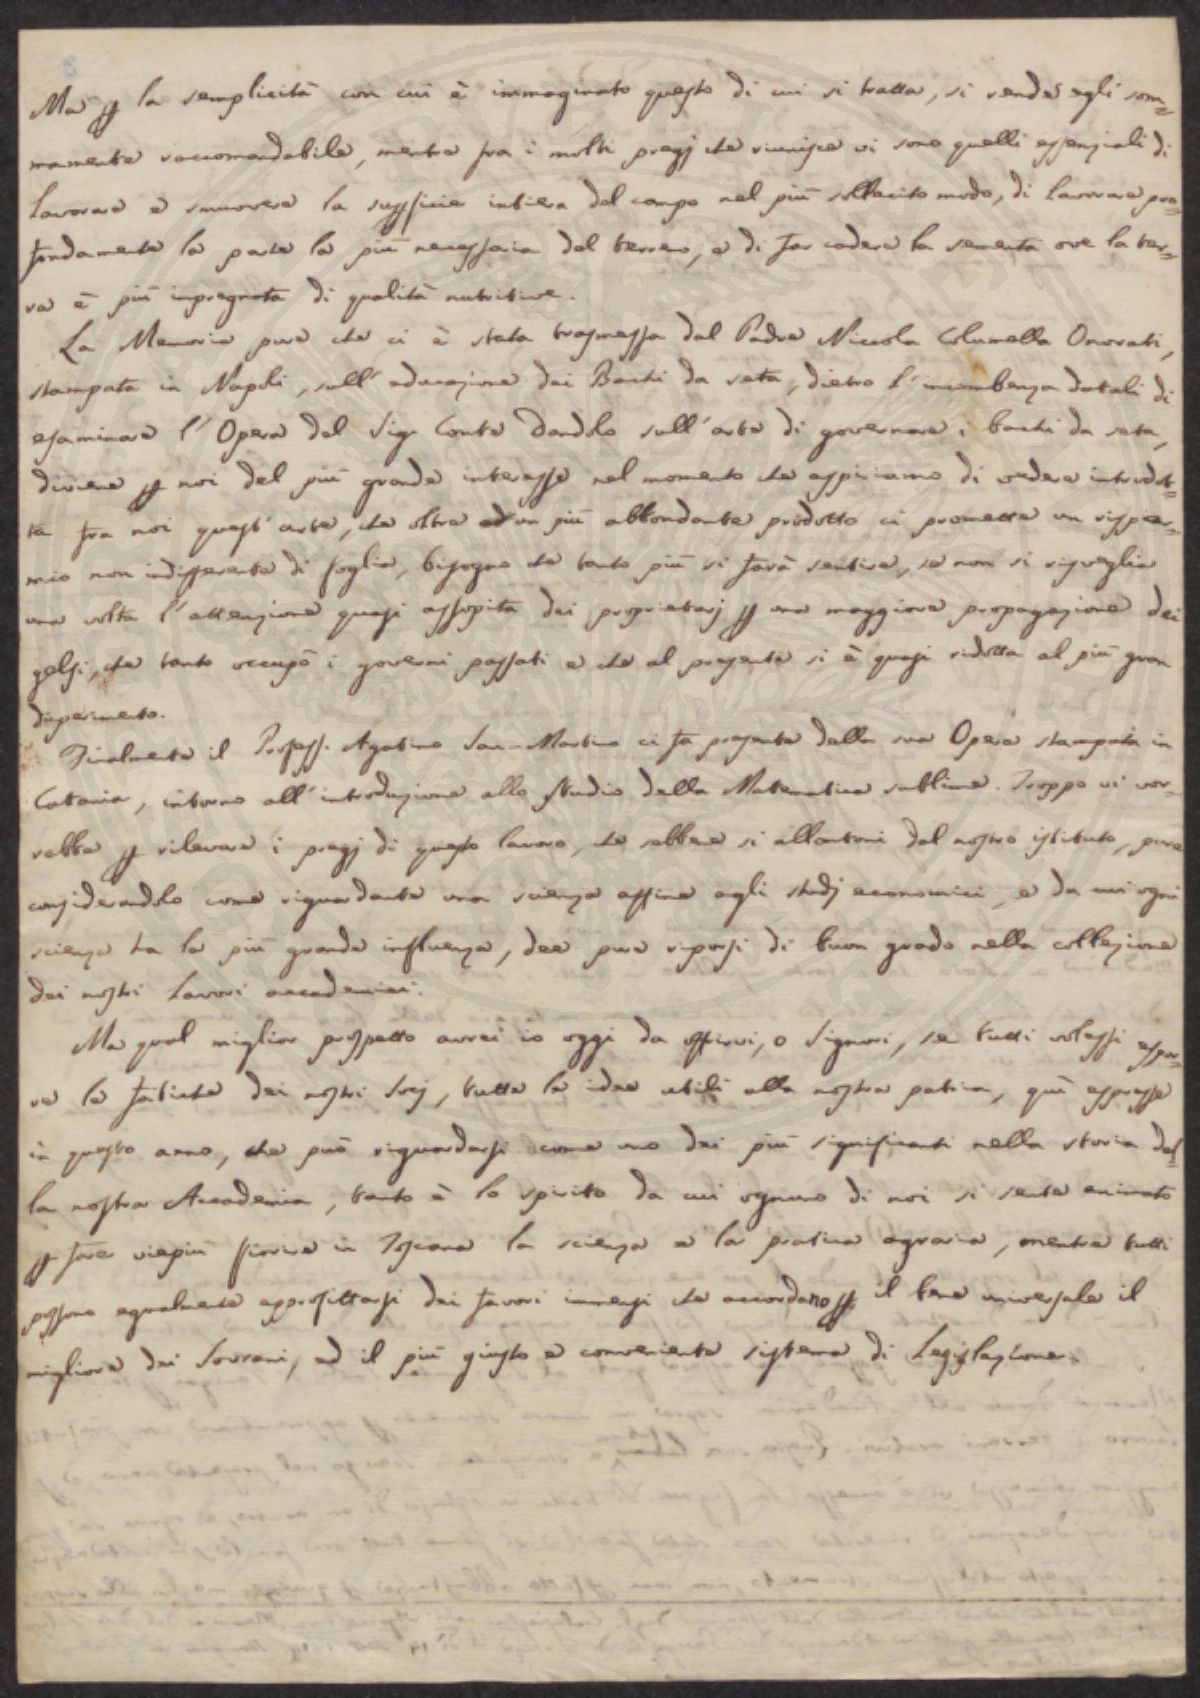 Ma p la semplicità con cui è immaginato questo di cui si tratta, si rende egli som=
mamente raccomandabile, mentre fra i molti pregj che riunisce vi sono quelli essenziali di
lavorare e smuovere la superficie intiera del campo nel più sollecito modo, di lavorare pro=
fondamente la parte la più necessaria del terreno, e di far cadere la sementa ove la ter=
ra è più impregnata di qualità nutritive.
La Memoria pure che ci è stata trasmessa dal Padre Niccola Columella Onorati,
stampata in Napoli, sull' educazione dei Bachi da seta, dietro l' incumbenza datali di
esaminare l' Opera del Sig. Conte Dandolo sull' arte di governare i bachi da seta,
diviene p noi del più grande interesse nel momento che aspiriamo di vedere introdot=
ta fra noi quest' arte, che oltre ad un più abbondante prodotto ci promette un rispar=
mio non indifferente di foglia, bisogno che tanto più si farà sentire, se non si risveglia
una volta l' attenzione quasi assopita dei proprietarj p una maggiore propagazione dei
gelsi, che tanto occupò i governi passati e che al presente si è quasi ridotta al più gran
deperimento.
Finalmente il Profess. Agatino San-Martino ci fa presente della sua Opera stampata in
Catania, intorno all' introduzione allo studio della Matematica sublime. Troppo vi vor=
rebbe p rilevare i pregj di questo lavoro, che sebbene si allontani dal nostro istituto, pure
considerandolo come riguardante una scienza affine agli studj economici, e da cui ogni
scienza ha la più grande influenza, dee pure riporsi di buon grado nella collezione
dei nostri lavori accademici.
Ma qual miglior prospetto avrei io oggi da offrirvi, o Signori, se tutti volessi espor=
re le fatiche dei nostri Socj, tutte le idee utili alla nostra patria, quì espresse
in questo anno, che può riguardarsi come uno dei più significanti nella storia del=
la nostra Accademia, tanto è lo spirito da cui ognuno di noi si sente animato
p far viepiù fiorire in Toscana la scienza e la pratica agraria, mentre tutti
possono egualmente approfittarsi dei favori immensi che accordano p il bene universale il
migliore dei Sovrani, ed il più giusto e conveniente sistema di Legislazione.